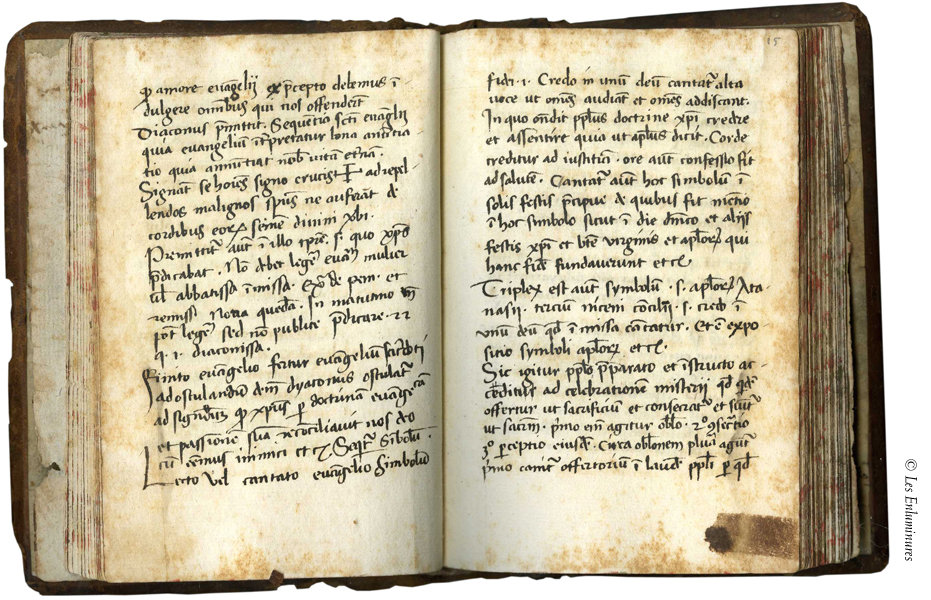 ꝓ amore evāgelij ex p̄cepto debemus ī
dulgere omnibus qui nos offenderūt
Diaconus p̄mittit. Sequētio scti evāglij
quia evangelium īterpretatur bona
tio quia annūtiat nob̄ vitā et̄nā.
Signāt se hoīes signo crucis ✝ ad repel
lendos malignos spūs ne auferāt de
cordibus eoꝝ semē divini xbi.
Premittitᷣ aūt ī illo tpre. s. quo xp̄s
p̄dicabat. Nō debet legē evāg mulier
ul abbatissa ī missa. de pen. et
remiss. Nova quedā. In matutino
pōt legē sed nō publice p̄dicare.
q. i. diaconissa.
Finito evāgelio fertur evāgeliū
ad ostulandum dyaconus
ad ꝓ xpianus ꝑ doctrinā
et passionē suā recōciliavit nos deo
cū inimici et c̄. Seqtᷣ Sībolū.
Lecto vel cantato evāgelio Simbolū
15
fidei. i. Credo in unū deū cantatᷣ alta
voce ut omēs audiant et omēs addiscant.
In quo ondit pplus doctrine xpi credere
et assentire quia ut aplus dicit. Corde
creditur ad iustitiā. ore aūt confessio fit
ad salutē. Cantatᷣ aūt hoc simbolū ī
solis festis p̄cipue de quibus fit mētio
ī hoc simbolo sicut ī die dnīco et alijs
festis xpi et btē virginis et aploꝝ qui
hanc fidē fundaverunt et c̄
Triplex est aūt symbolū. s. aploꝝ Ata
nasii. terciū niceni cōcilij. s. credo ī
unū deū qd ī missa cātatur. Et ē expo-
sitio symboli aploꝝ et c̄.
Sic igitur pplo p̄parato et īstructo ac
ceditur ad celebrationē misterij qd
offertur ut sacrificiū et consecratᷣ et
ut sacrm. p̄mo em̄ agitur oblo. 2o
3o ꝑceptio eiusdē. Circa oblonem plura agūt
p̄mo canitᷣ offertorium ī laudē ppli ꝑ qd
© Les Enluminures